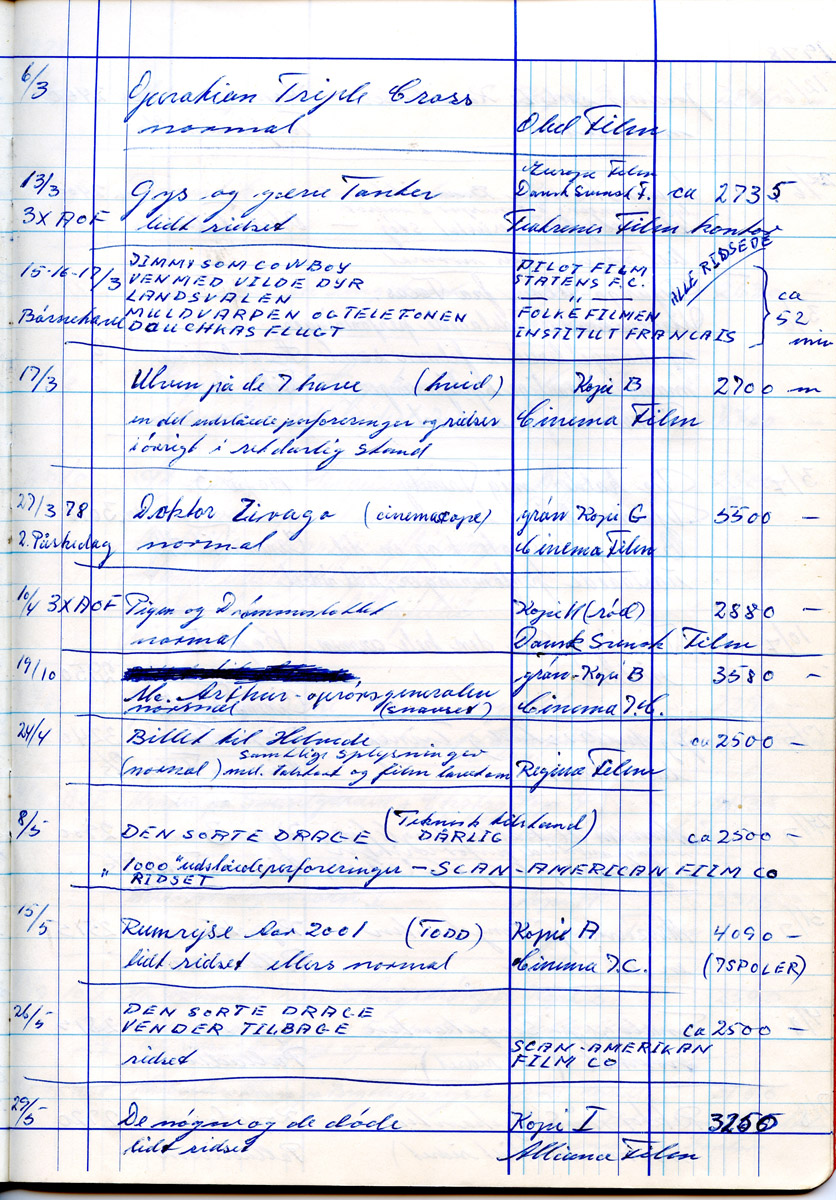 6/3 Operation Triple Cross
normal Obel Film
Europa Film
13/3 Gys og gæve Tanter Dansk Svensk F. ca 2735
3X AOF lidt ridset Teatrenes Film kontor
JIMMY SOM COWBOY PILOT FILM ALLE RIDSEDE
15-16-17/3 VEN MED VILDE DYR STATENS F.C.
LANDSVALEN — " — ca
Børnehave MULDVARPEN OG TELEFONEN FOLKEFILMEN 52
DOUCHKAS FLUGT INSTITUT FRANCAIS min
17/3 Ulven på de 7 have (hvid) Kopi B 2700 m
en del udslåede perforeringer og ridser Cinema Film
iøvrigt i ret dårlig stand
27/3 78 Doktor Zivago (cinemascope) grøn Kopi G 5500 —
2. Påskedag normal Cinema Film
10/4 3X AOF Pigen og Drømmeslottet Kopi 11 (rød) 2880 —
normal Dansk Svensk Film
19/10 grøn - Kopi B 3580 —
Mc. Arthur - oprørsgeneralen
normal (snavset) Cinema I.C.
24/4 Billet til Helvede ca 2500 —
samtlige oplysninger
(normal) og film Regina Film
8/5 DEN SORTE DRAGE (Teknisk tilstand DÅRLIG) ca 2500 —
" 1000 " udslåede perforeringer — SCAN-AMERICAN FILM CO
RIDSET
15/5 Rumrejse Aar 2001 (TODD) Kopi A 4090 —
lidt ridset ellers normal Cinema I.C. (7 SPOLER)
26/5 DEN SORTE DRAGE
VENDER TILBAGE ca 2500 —
ridset SCAN-AMERIKAN
FILM CO
29/5 De nøgne og de døde Kopi I 3266
lidt ridset Alliance Film